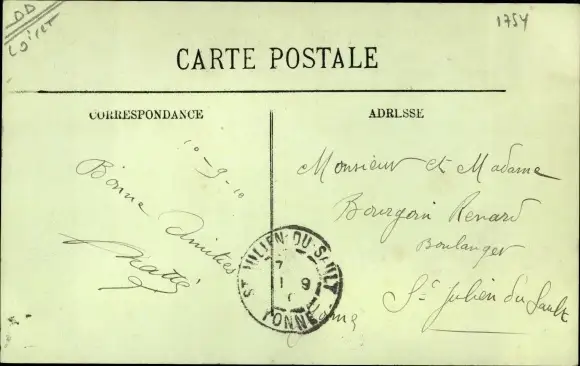 DD
Loiret
1754
CARTE POSTALE
CORRESPONDANCE
ADRESSE
10-9-10
Bonne
Amitiés
Monsieur et Madame
Bourgoin Renard
Boulanger
St Julien du Sault
Yonne
ST JULIEN-DU-SAULT
YONNE